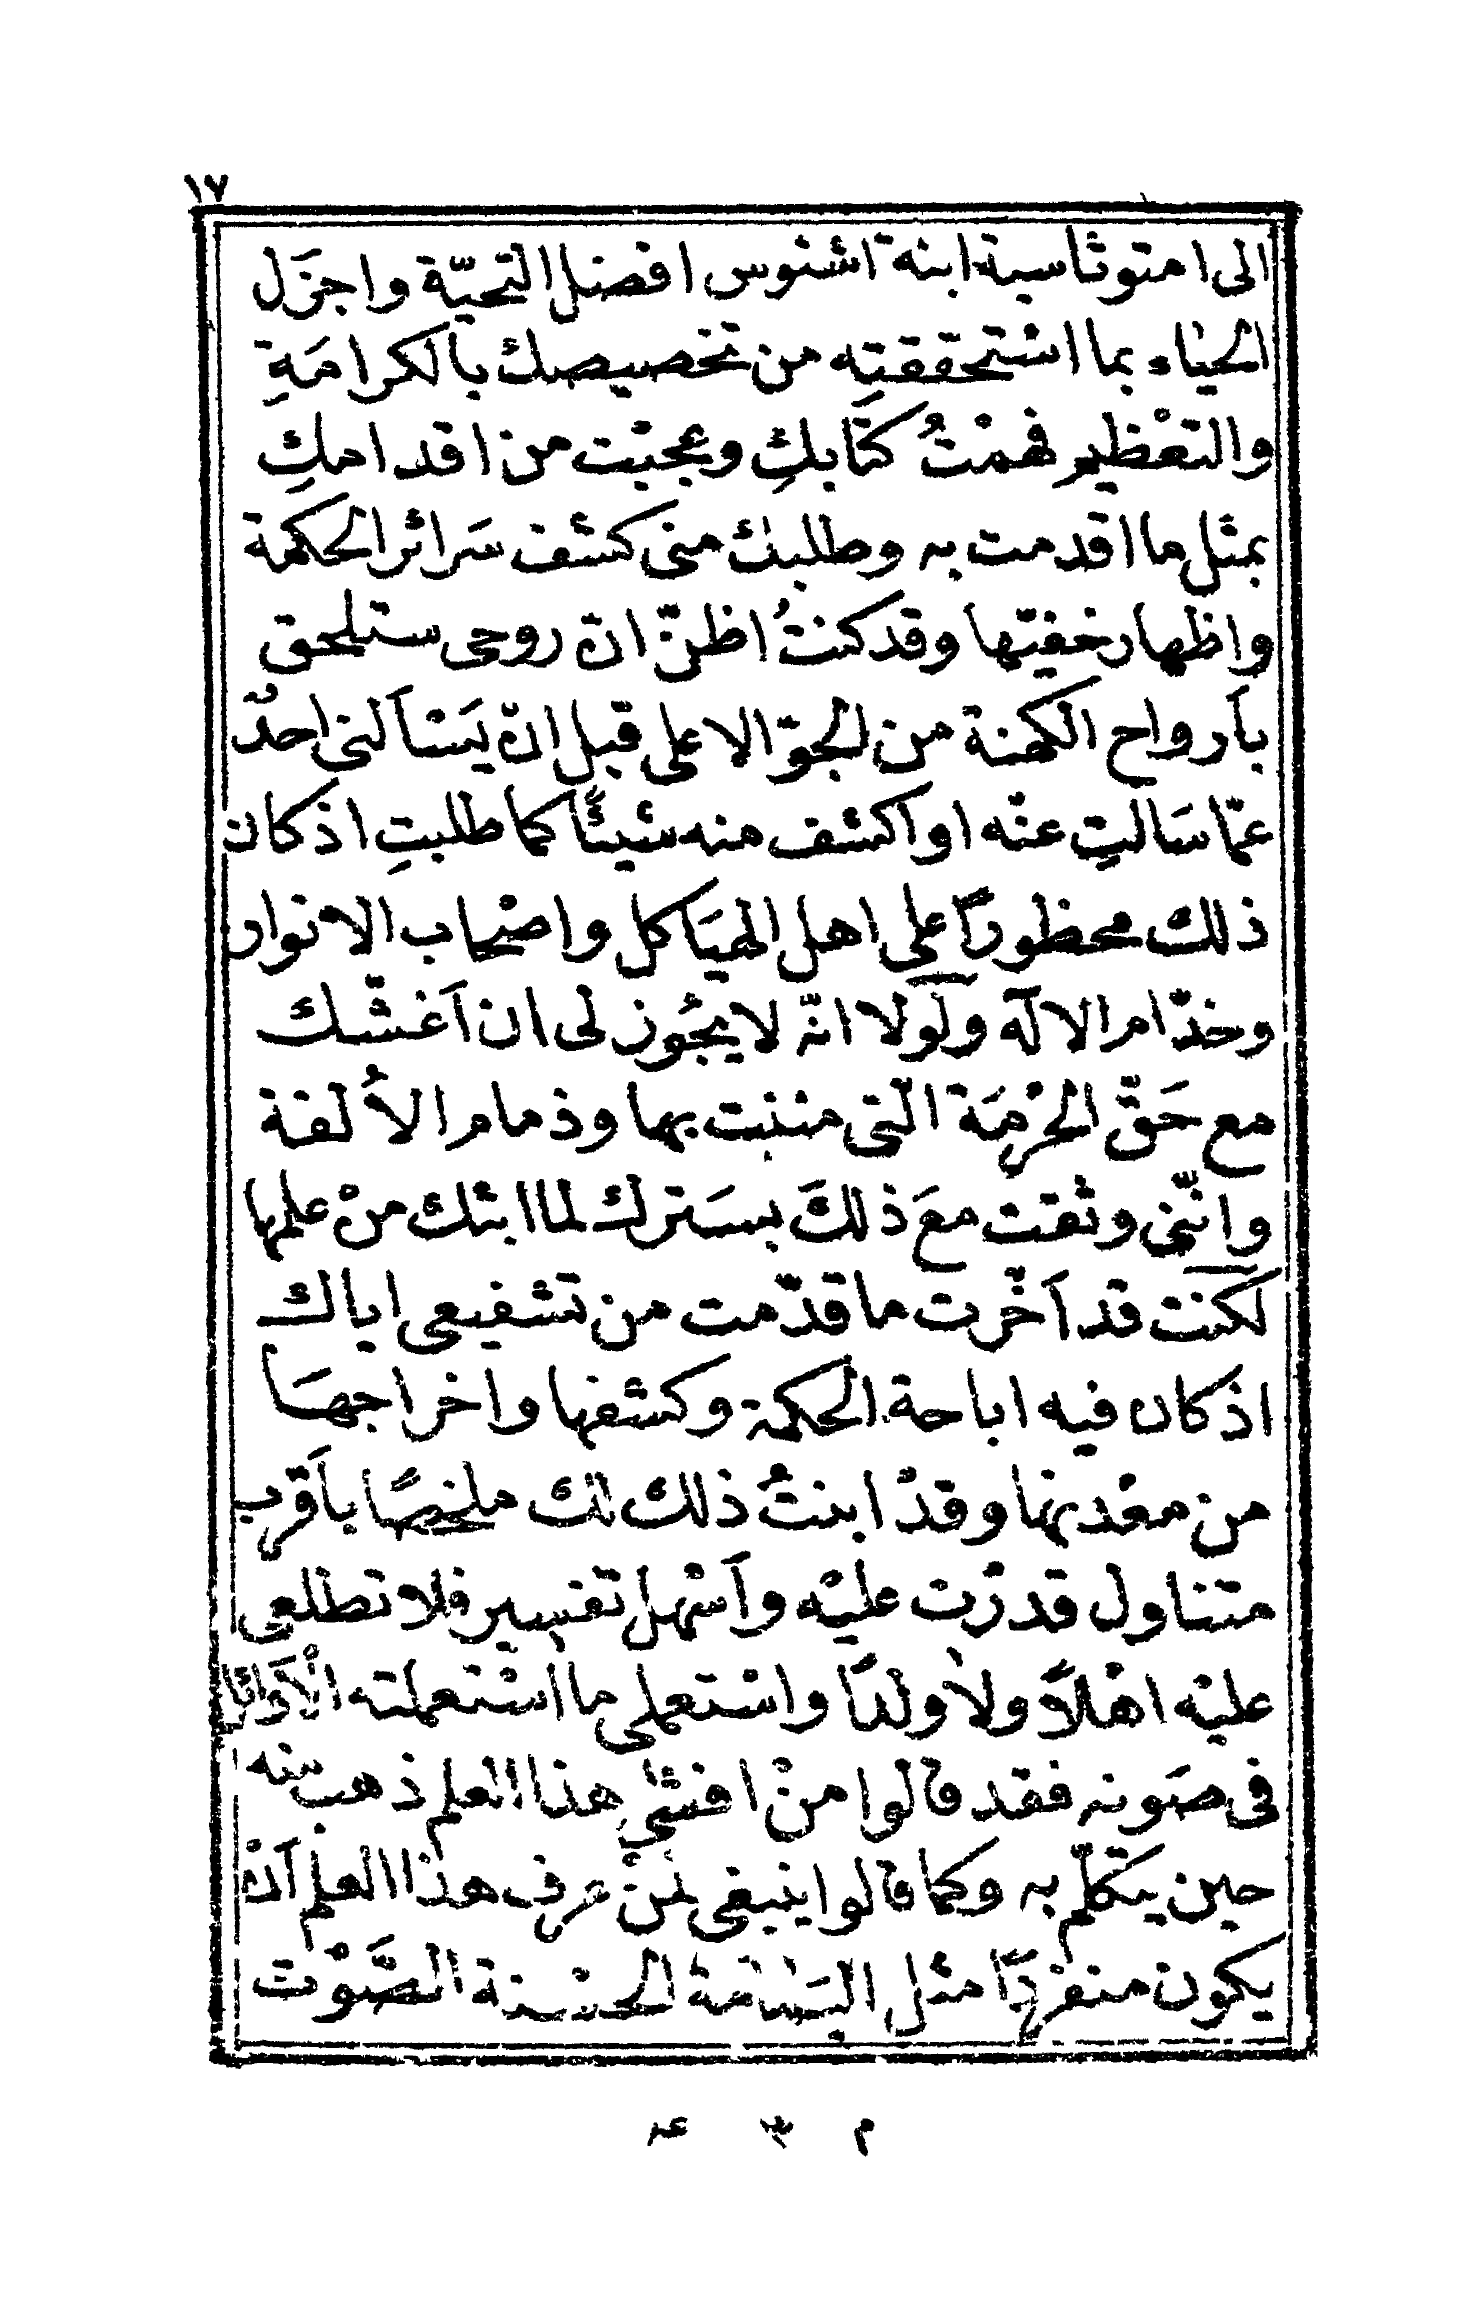 ١٧
الى امتوثاسية ابنة اشنوس افضل التحيّة واجزَل
الحياء بما اسْتحققتِه من تخصيصك بالكرامَةِ
والتعْظيم فهمْتُ كتَابكِ وعجبْت من اقدامكِ
بمثل ما اقدمت به وطلبك منى كشف سَرائر الحكمة
واظهار خفيّتها وقد كنتُ اظنّ انّ روحى ستلحق
بأرواح الكهنة من الجوّ الاعلى قبل انّ يَسْألنى احدٌ
عمّا سَالتِ عنْه او اكشف منه شيئًا كما طلبتِ اذ كان
ذلك محظورًا على اهل الهيَاكل واصْحاب الانوار
وخدّام الآلة ولولا انّه لا يجُوز لى ان أغشّك
مع حَقّ الحرْمَة الّتى مننبت بها وذمام الأُلفة
وانّنى وثقت معَ ذلكَ بسَترك لما ابثك منْ علمها
لكنت قد أخّرت ما قدّمت من تشفيعى اياك
اذ كان فيه اباحة الحكمة وكشفها واخراجهَا
من معْدنها وقدْ ابنتُ ذلك لك ملخصًا بأقرب
متناول قدرْت عليْه وأسْهل تفسير فلا تطلعى
عليْه اهْلاً ولا ولدًا واسْتعملى ما اسْتعملته الأوائل
فى صَونه فقد قالوا منْ افشى هذا العلم ذهب منه
حين يتكلّم به وكما قالوا ينبغى لمنْ عرف هذا العلم أنْ
يكون منفردًا مثل اليَمامة الحسْنة الصَّوْت
م ٣ عر